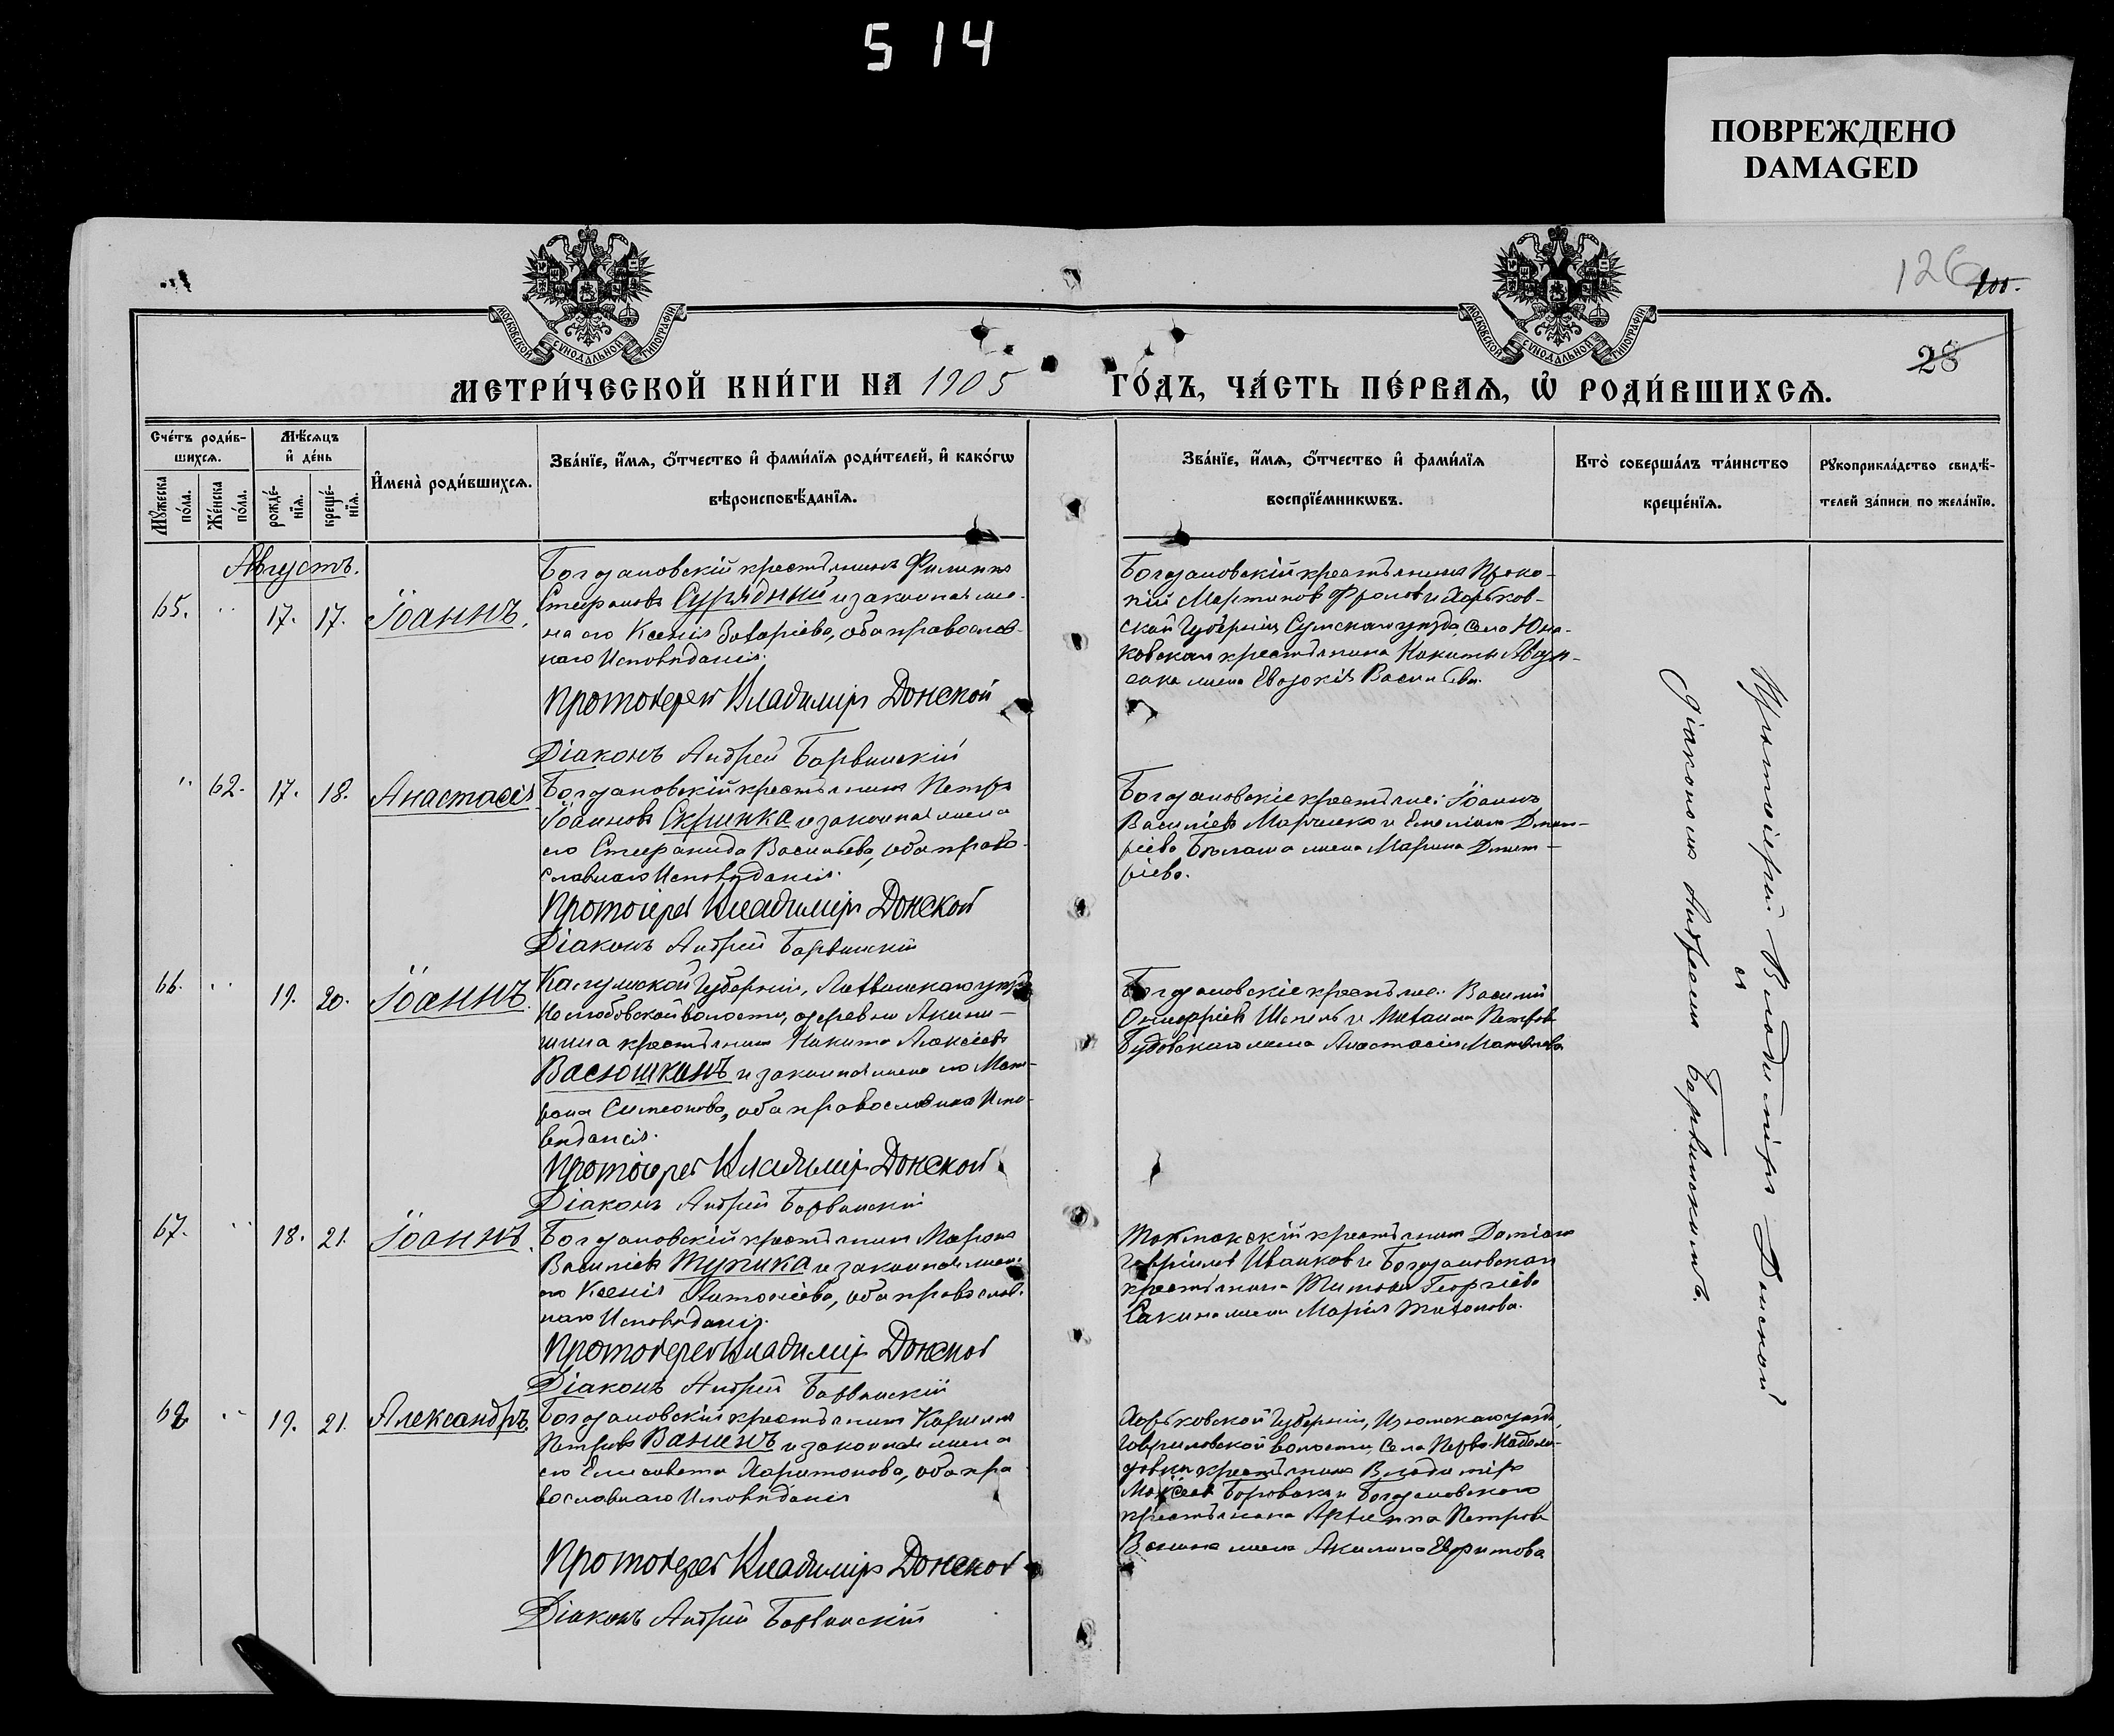 514
ПОВРЕЖДЕНО
DAMAGED
126
28
МОСКОВСКОЙ СѴНОДАЛЬНОЙ ТИПОГРАФІИ
МОСКОВСКОЙ СѴНОДАЛЬНОЙ ТИПОГРАФІИ
МЕТРИ́ЧЕСКОЙ КНИ́ГИ НА 1905 ГО́ДЪ, ЧА́СТЬ ПЕ́РВАѦ, Ѽ РОДИ́ВШИХСѦ.
Сче́тъ роди́в-
шихсѧ.
Мꙋ́жеска по́ла.
Же́нска по́ла.
Мѣ́сѧцъ и҆ де́нь
рожде́-
нїѧ.
креще́-
нїѧ.
И҆мена̀ роди́вшихсѧ.
Зва́нїе, и҆́мѧ, ѻ҆́тчество и҆ фами́лїѧ роди́телей, и҆ како́гѡ
вѣроисповѣ́данїѧ.
Зва́нїе, и҆́мѧ, ѻ҆́тчество и҆ фами́лїѧ
воспрїе́мникѡвъ.
Кто̀ соверша́лъ та́инство
креще́нїѧ.
Рꙋкоприкла́дство свидѣ́-
телей за́писи по жела́нїю.
Августъ.
65. " 17. 17. Іоаннъ.
Богдановскій крестьянинъ Филиппъ
Стефановъ Сурядный и законная же-
на его Ксенія Захаріева, оба православ-
наго Исповѣданія.
Протоіерей Владиміръ Донской
Діаконъ Андрей Барвинскій
Богдановскій крестьянинъ Проко-
пій Мартиновъ Фролов и Харьков-
ской Губерніи Сумскаго уѣзда, села Юна-
ковскаго крестьянина Никиты
жена Евдокія Васильева.
" 62. 17. 18. Анастасія
Богдановскій крестьянинъ Петръ
Іоанновъ Скрипка и законная жена
его Стефанида Васильева, оба право-
славнаго Исповѣданія.
Протоіерей Владиміръ Донской
Діаконъ Андрей Барвинскій
Богдановскіе крестьяне: Іоаннъ
Василіевъ и Емеліана Димит-
ріева жена Марина Димит-
ріева.
66. " 19. 20. Іоаннъ.
Калужской Губерніи, Лихвинскаго уѣзда
волости, деревни
крестьянинъ Никита Алексіевъ
Васюшкинъ и законная жена его Мат-
рона Симеонова, оба православнаго Испо-
вѣданія.
Протоіерей Владиміръ Донской
Діаконъ Андрей Барвинскій
Богдановскіе крестьяне: Василій
Онуфріевъ и Михаила Петрова
Будовскаго жена Анастасія
67. " 18. 21. Іоаннъ.
Богдановскій крестьянинъ Маронъ
Василіевъ Тупика и законная жена
его Ксенія оба православ-
наго Исповѣданія.
Протоіерей Владиміръ Донской
Діаконъ Андрей Барвинскій
Токмакскій крестьянинъ Даміанъ
Гавріиловъ Иванков и Богдановскаго
крестьянина Георгіева
жена Марія Тихонова.
68 " 19. 21. Александръ.
Богдановскій крестьянинъ Кириллъ
Петровъ Ванинъ и законная жена
его Елисавета Харитонова, оба пра-
вославнаго Исповѣданія
Протоіерей Владиміръ Донской
Діаконъ Андрей Барвинскій
Харьковской Губерніи, Изюмскаго уѣзда,
Гавриловской волости, села
крестьянинъ Владиміръ
и Богдановскаго
крестьянина Архиппа Петрова
Ванина жена Акилина
Протоіерей Владиміръ Донской
съ
Діакономъ Андреемъ Барвинскимъ.